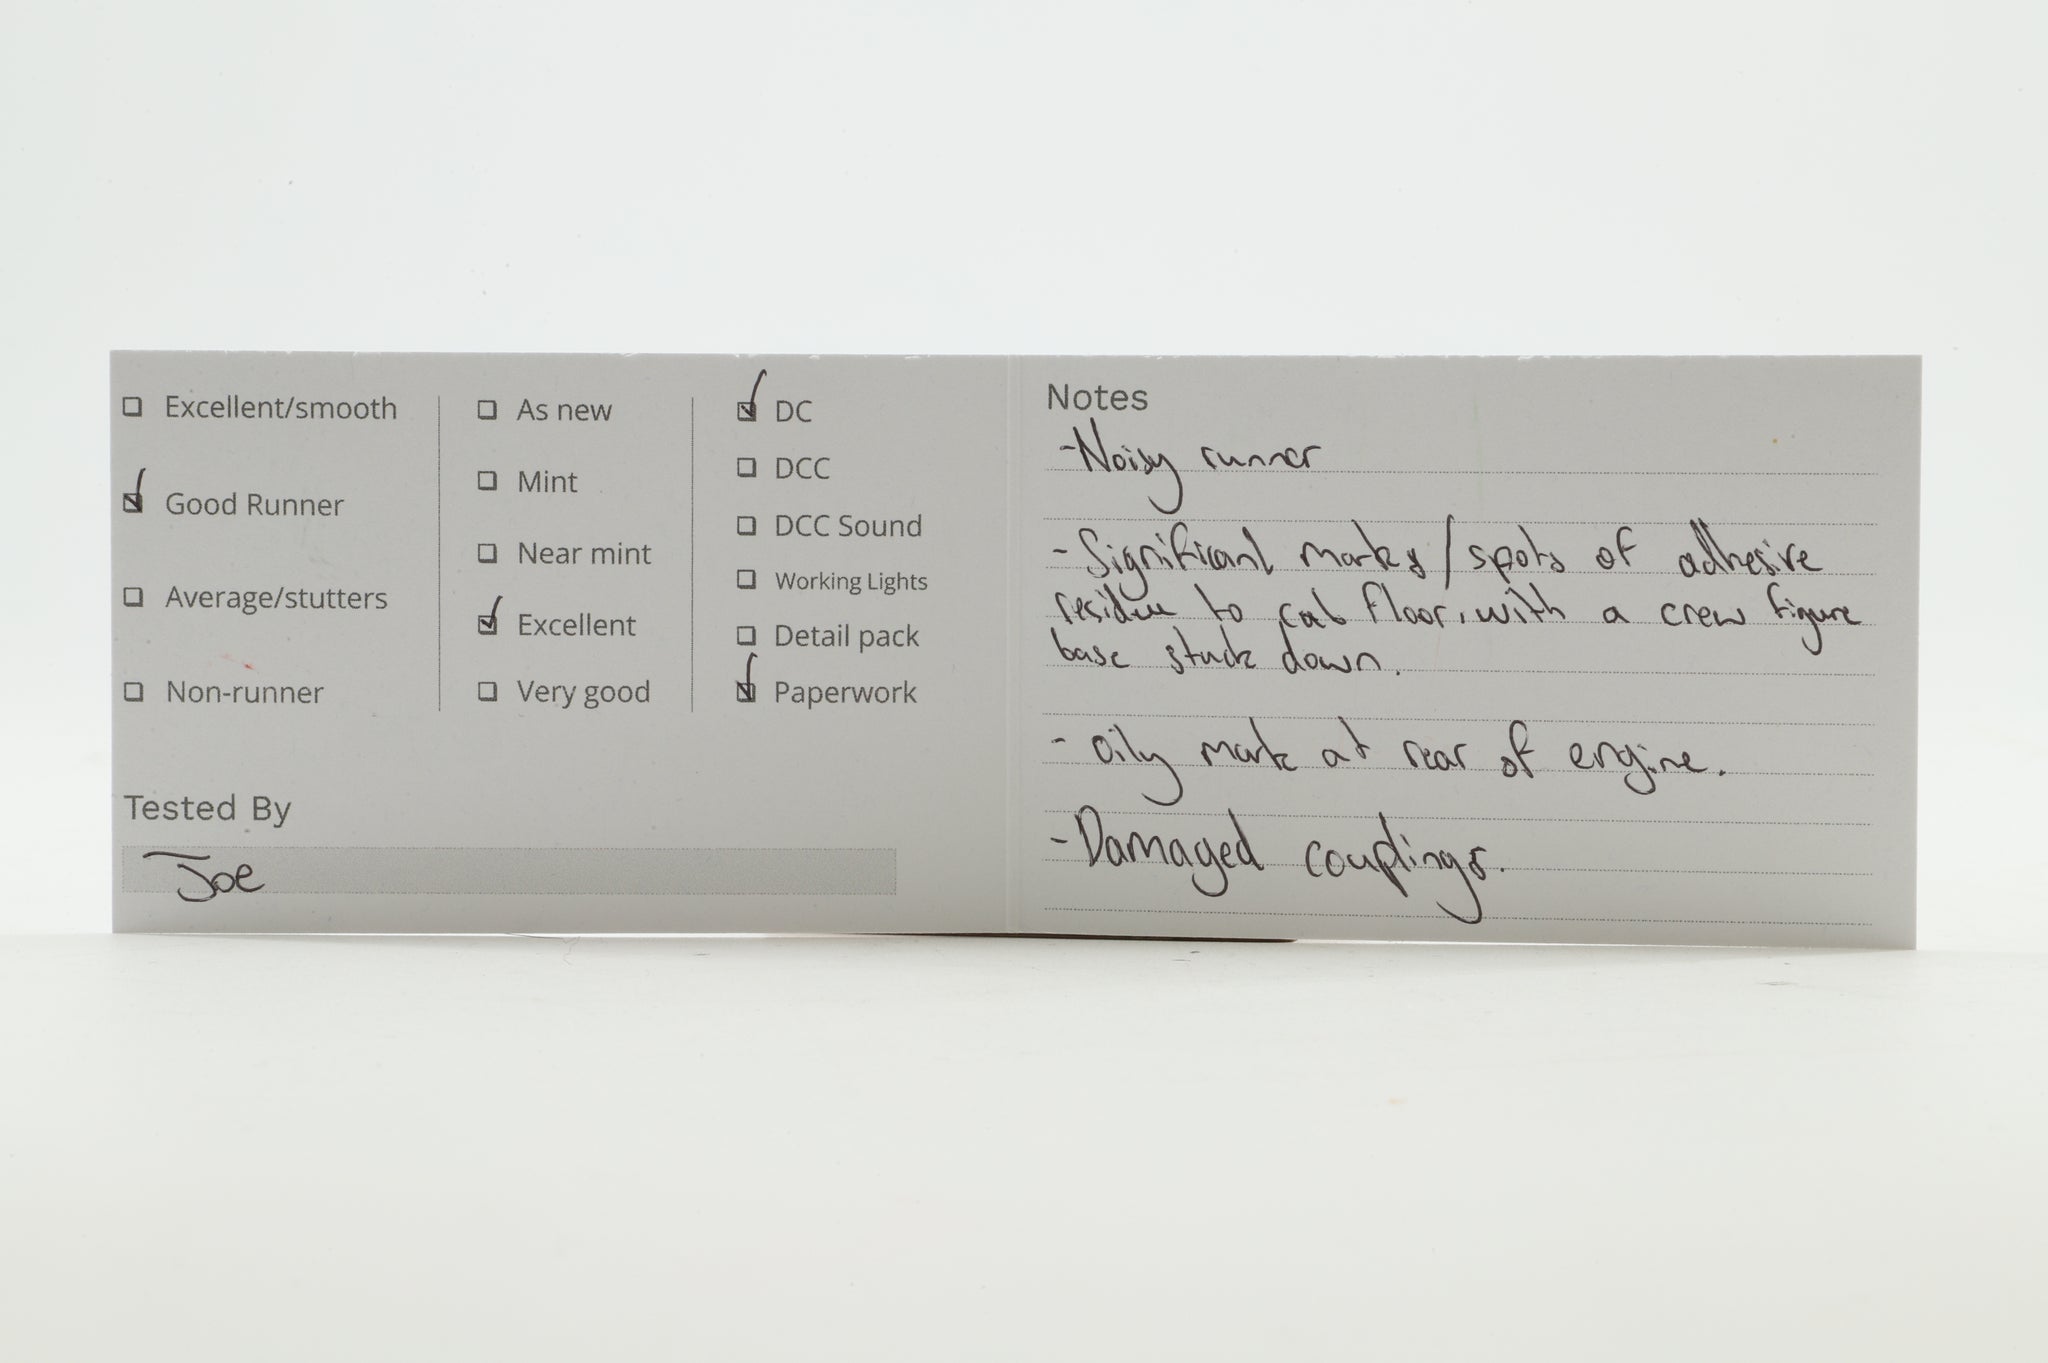 Excellent/smooth
Good Runner
Average/stutters
Non-runner
As new
Mint
Near mint
Excellent
Very good
DC
DCC
DCC Sound
Working Lights
Detail pack
Paperwork
Tested By
Joe
Notes
-Noisy runner
-Significant marks/spots of adhesive
residue to cab floor, with a crew figure
base stuck down.
- oily mark at rear of engine.
-Damaged couplings.